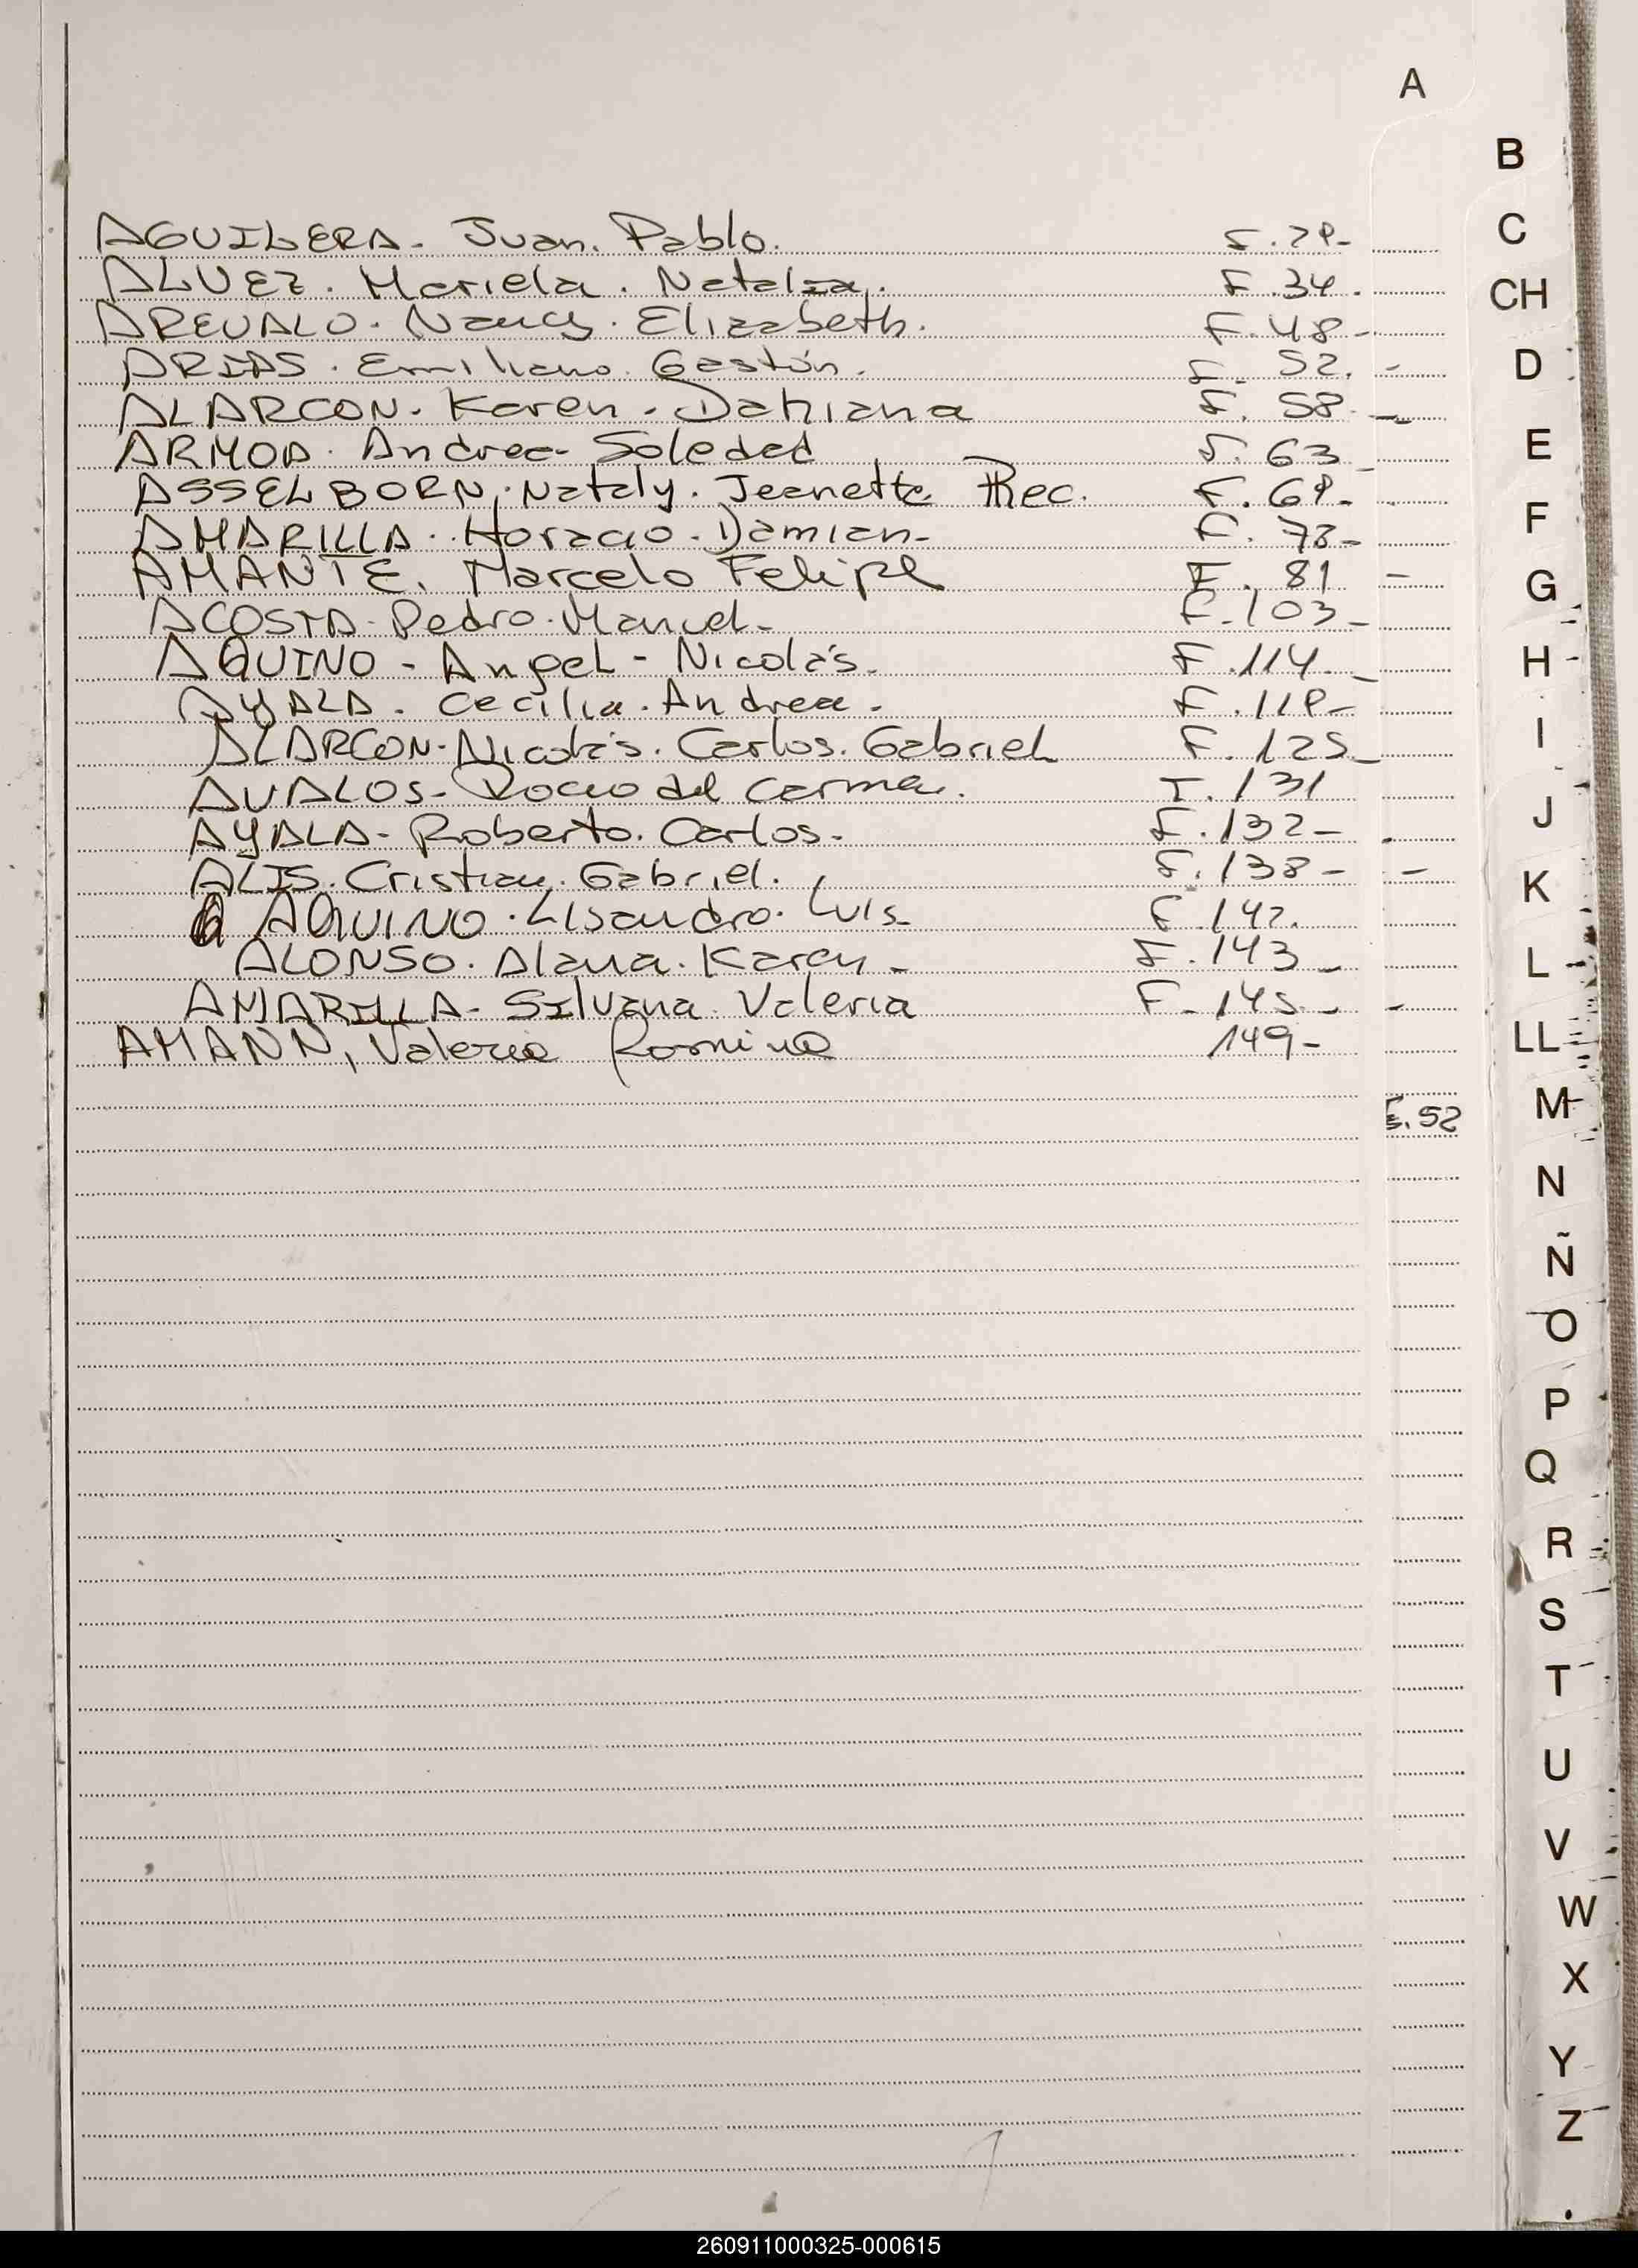 A
B
C
CH
D
E
F
G
H
I
J
K
L
LL
M
N
Ñ
O
P
Q
R
S
T
U
V
W
X
Y
Z
AGUILERA - Juan. Pablo. F. 29-
ALVEZ. Mariela. Natalia. F. 34.
AREVALO. Nancy. Elizabeth. F. 48-
ARIAS. Emiliano. Gastón. F. 52. -
ALARCON. Karen. Dahiana F. 58. -
ARMOA. Andrea Soledad F. 63 -
ASSELBORN, Nataly. Jeanette Rec. F. 69-
AMARILLA. Horacio. Damian- F. 73-
AMANTE. Marcelo Felipe F. 81 -
ACOSTA. Pedro. Manuel- F. 103-
AQUINO - Angel - Nicolás. F. 114. -
AYALA. Cecilia. Andrea. F. 119-
ALARCON. Nicolás. Carlos. Gabriel F. 125-
AVALOS- Rocio del Carmen. F. 131
AYALA- Roberto. Carlos. F. 132-
ALIS. Cristian. Gabriel. F. 138- -
AQUINO. Lisandro. Luis- F. 142.
ALONSO. Alana. Karen - F. 143 -
AMARILLA- Silvana Valeria F- 145- -
AMANN, Valeria Romina 149-
F. 52
260911000325-000615